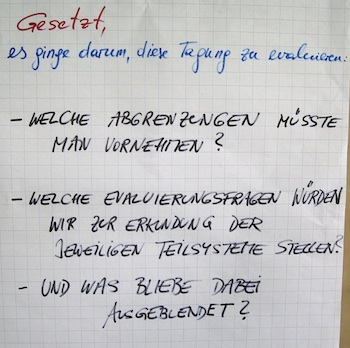 Gesetzt,
es ginge darum, diese Tagung zu evaluieren:
- WELCHE ABGRENZUNGEN MÜSSTE
MAN VORNEHMEN?
- WELCHE EVALUIERUNGSFRAGEN WÜRDEN
WIR ZUR ERKUNDUNG DER
JEWEILIGEN TEILSYSTEME STELLEN?
- UND WAS BLIEBE DABEI
AUSGEBLENDET?